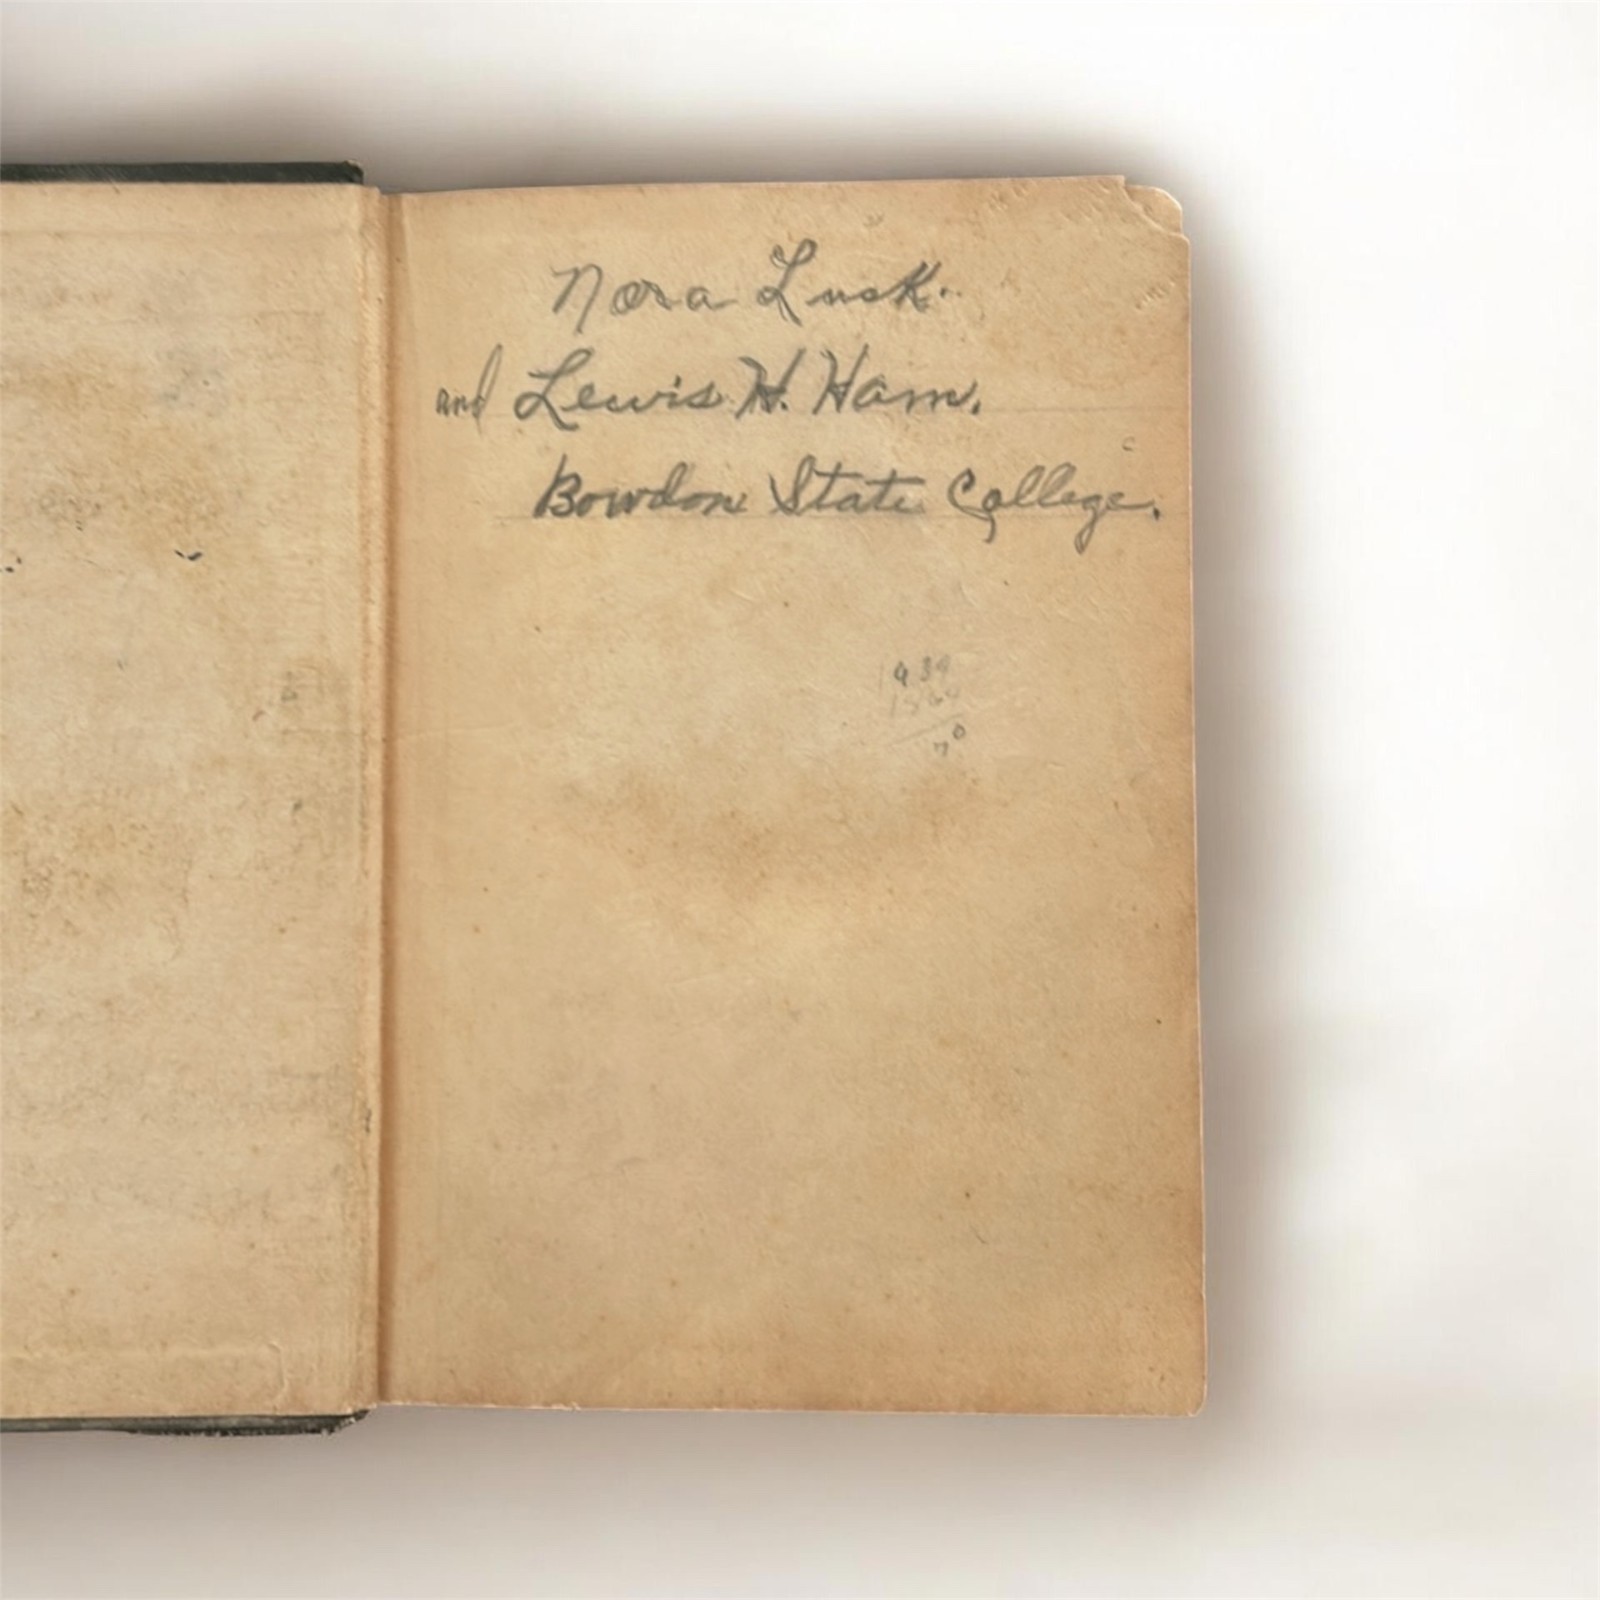 Nora Lusk.
and Lewis H. Ham.
Bowdon State College.
1939
70